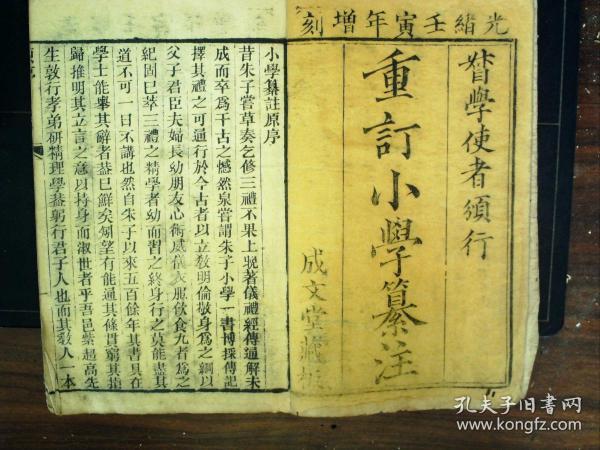 光緒壬寅年增刻
督學使者頒行
重訂小學纂注
成文堂藏板
小學纂註原序
昔朱子嘗草奏乞修三禮不果上晩著儀禮經傳通解未
成而卒為千古之憾然泉嘗謂朱子小學一書博採傳記
擇其禮之可通行於今古者以立教明倫敬身為之綱以
父子君臣夫婦長幼朋友心術威儀衣服飲食九者為之
紀固已萃三禮之精學者幼而習之終身行之莫能盡其
道不可一日不講也然自朱子以來五百餘年其書具在
學士能舉其辭者葢已鮮矣矧望有能通其條貫窮其指
歸推明其立言之意以持身而淑世者乎吾邑紫超高先
生敦行孝弟研精理學葢躬行君子人也而其教人一本
孔夫子旧书网
www.kongfz.com